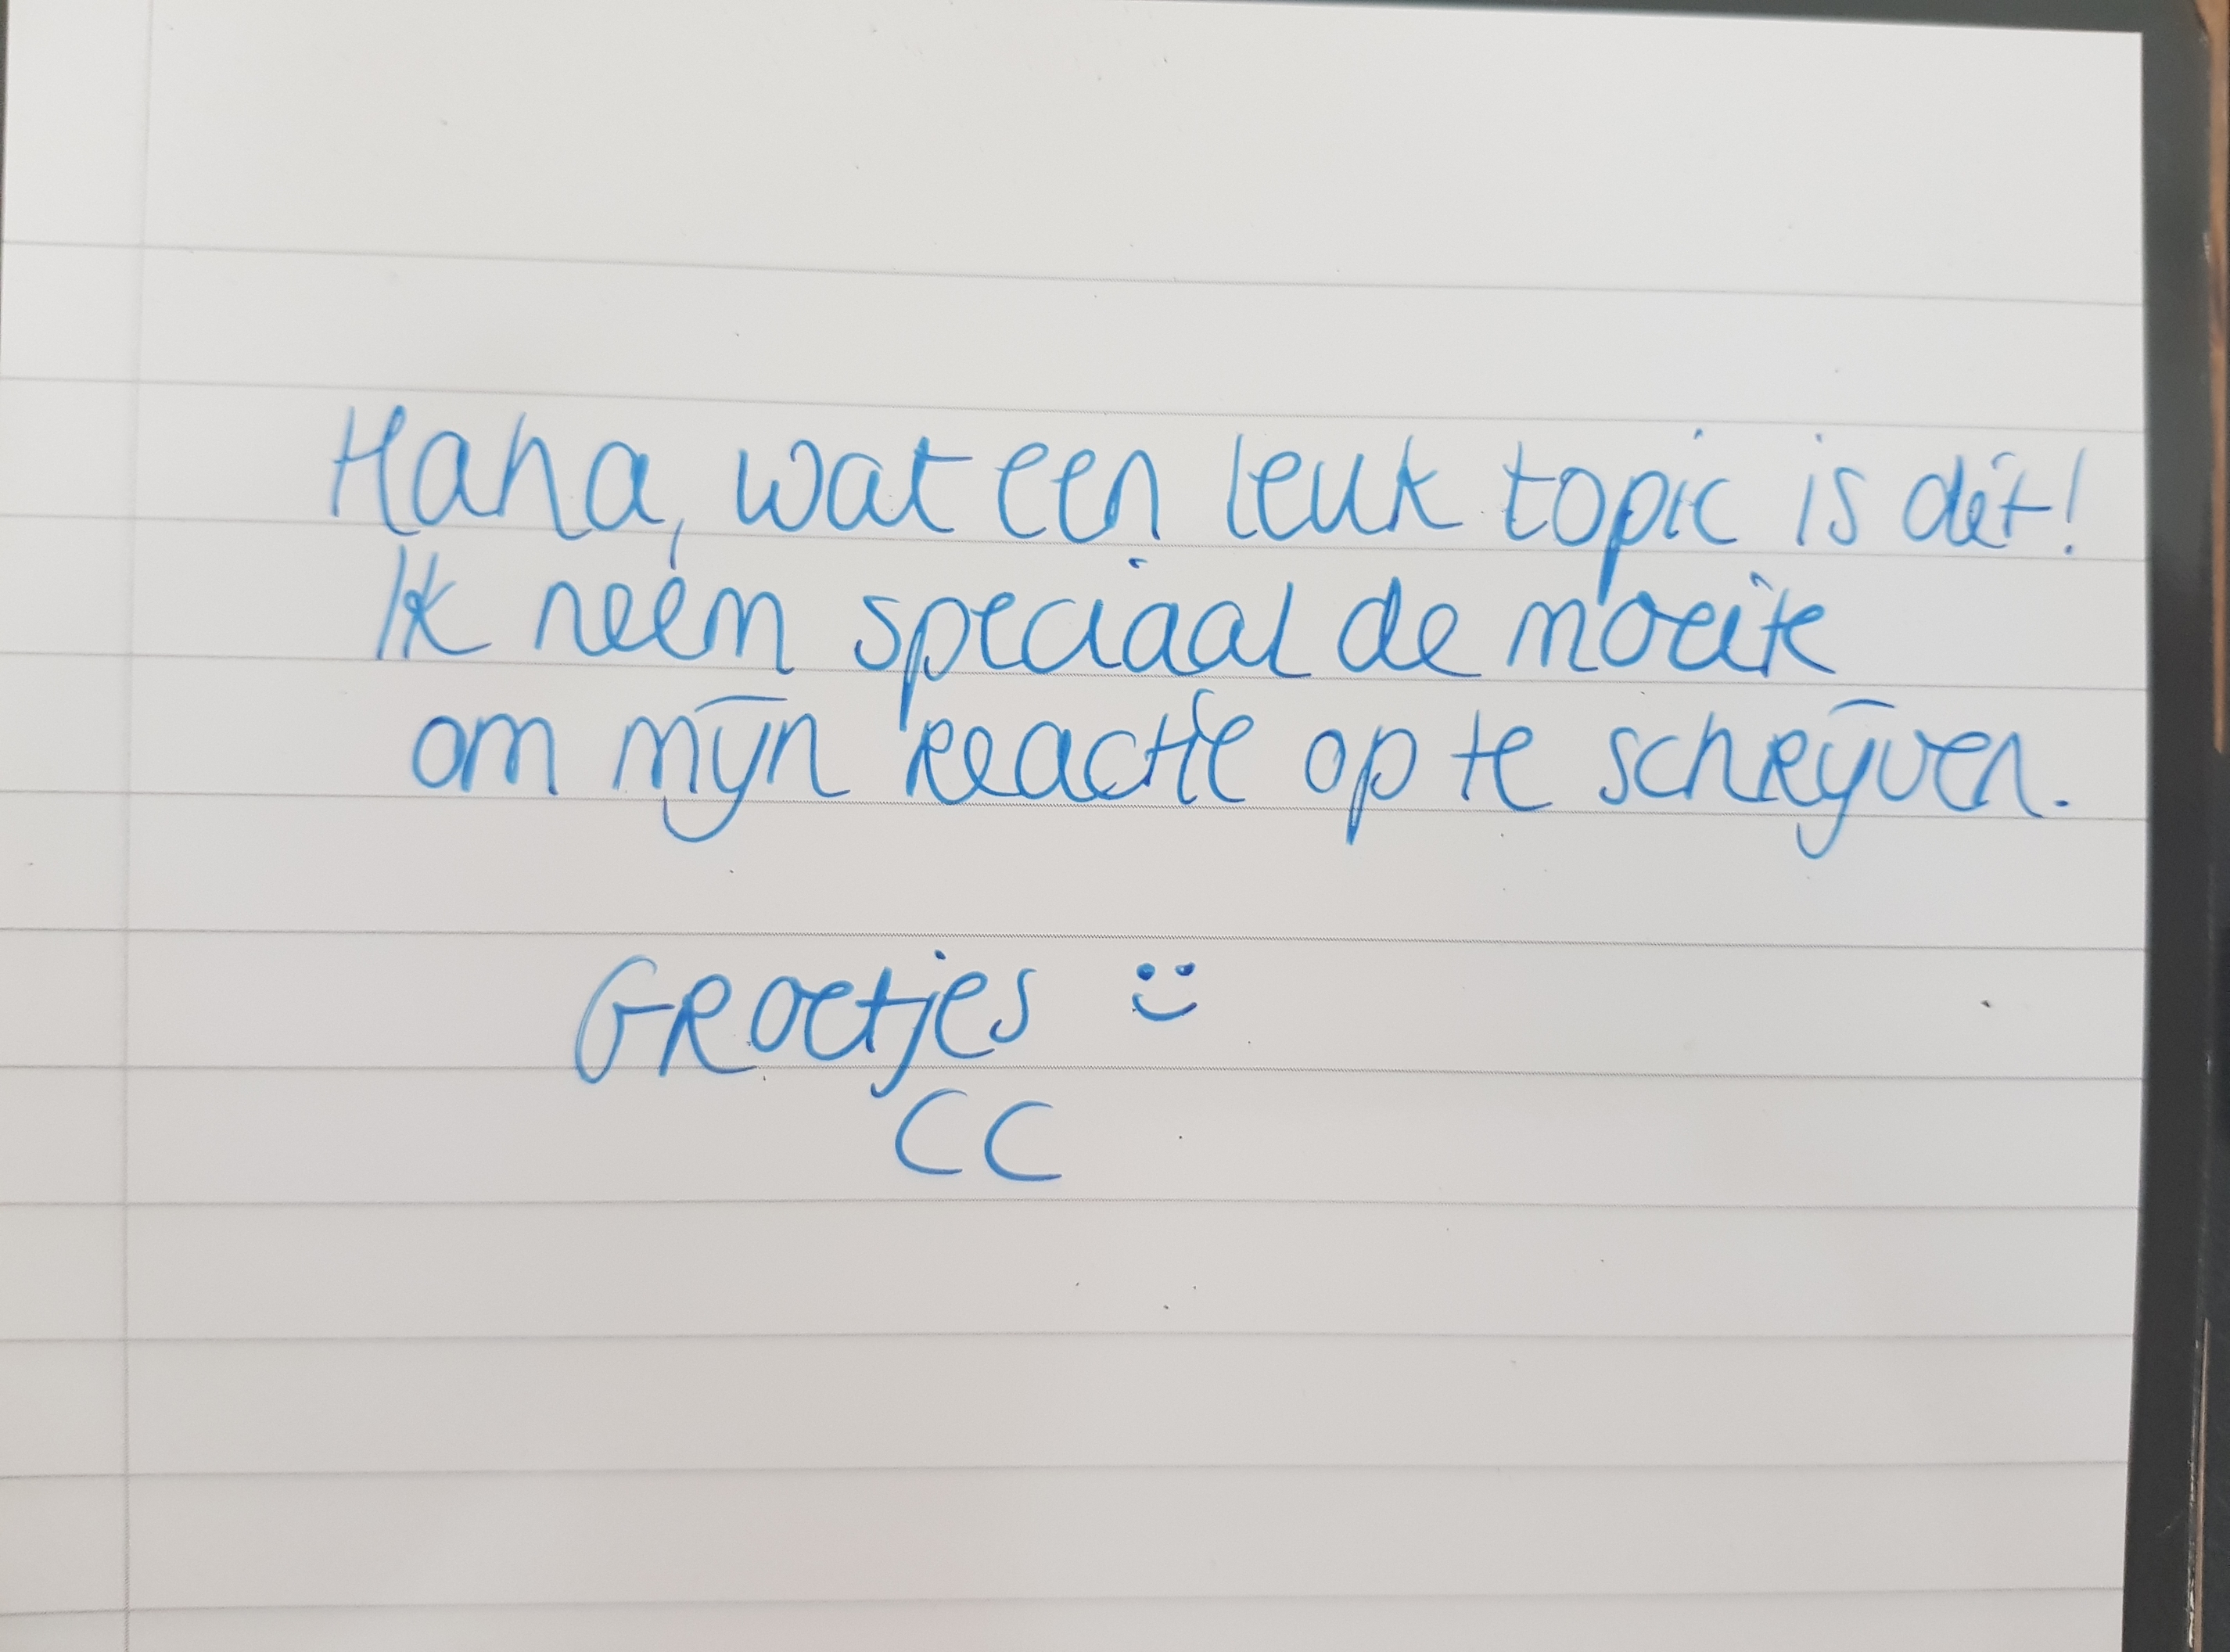 Haha, wat een leuk topic is dit!
Ik neem speciaal de moeite
om mijn reactie op te schrijven.
Groetjes :)
CC